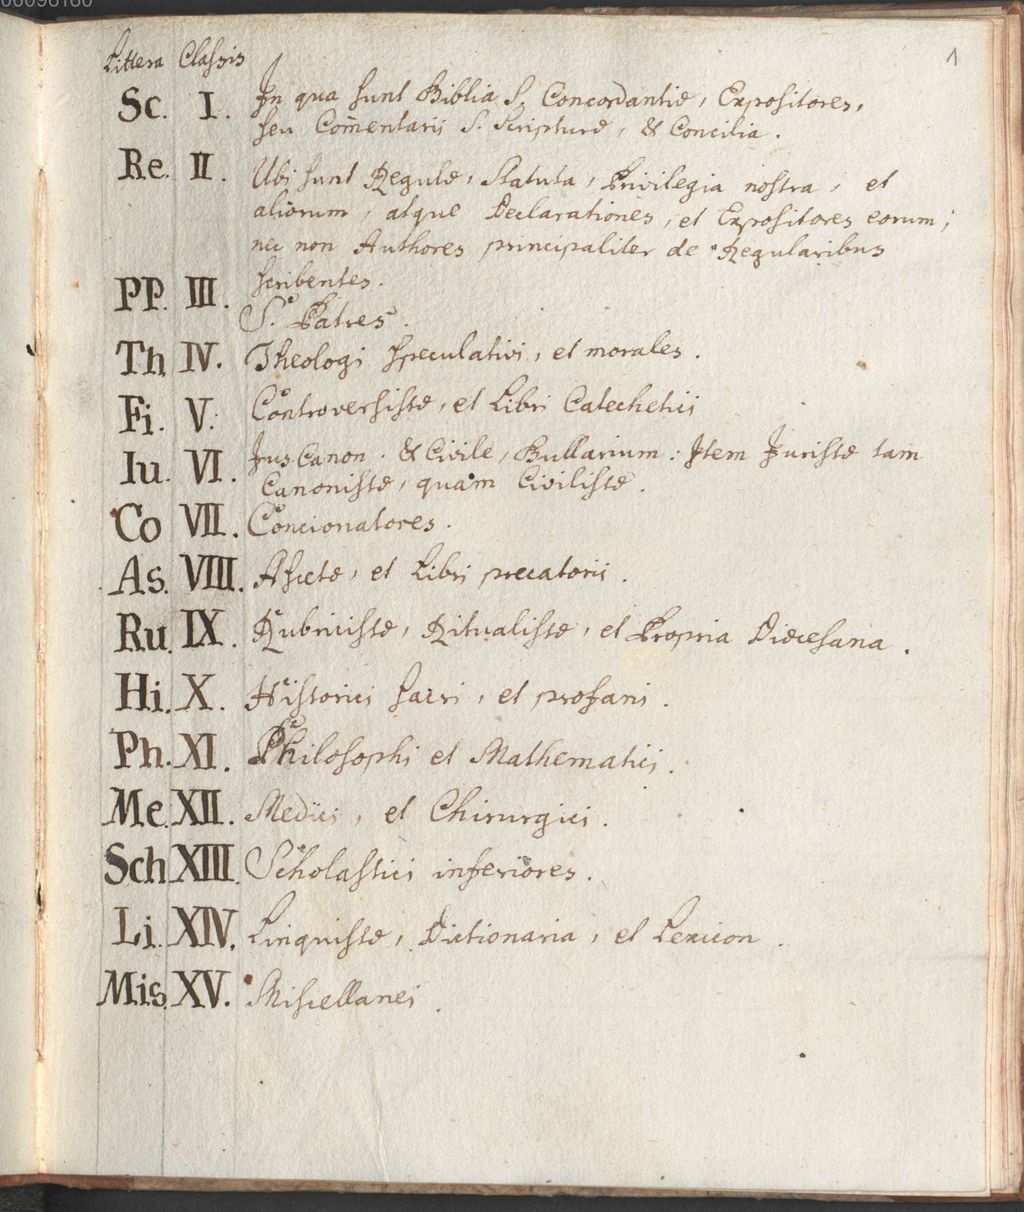 00096160
1
Littera Classis
Sc. I. In qua sunt Biblia S. Concordantiæ, Expositores,
seu Com̄entarii S. Scripturæ, & Concilia.
Re. II. Ubi sunt Regulæ, Statuta, Privilegia nostra, et
aliorum, atque Declarationes, et Expositores eorum;
nec non Authores principaliter de Regularibus
scribentes.
PP. III. S. Patres.
Th. IV. Theologi speculativi, et morales.
Fi. V. Controversistæ, et Libri Catechetici
Iu. VI. Jus Canon. & Civile, Bullarium. Item Juristæ tam
Canonistæ, quam Civilistæ.
Co VII. Concionatores.
As. VIII. Ascetæ, et Libri precatorii.
Ru. IX. Rubricistæ, Ritualistæ, et Propria Diœcesana.
Hi. X. Historici sacri, et profani.
Ph. XI. Philosophi et Mathematici.
Me. XII. Medici, et Chirurgici.
Sch XIII. Scholastici inferiores.
Li. XIV. Linquistæ, Dictionaria, et Lexicon.
Mis. XV. Miscellanei.